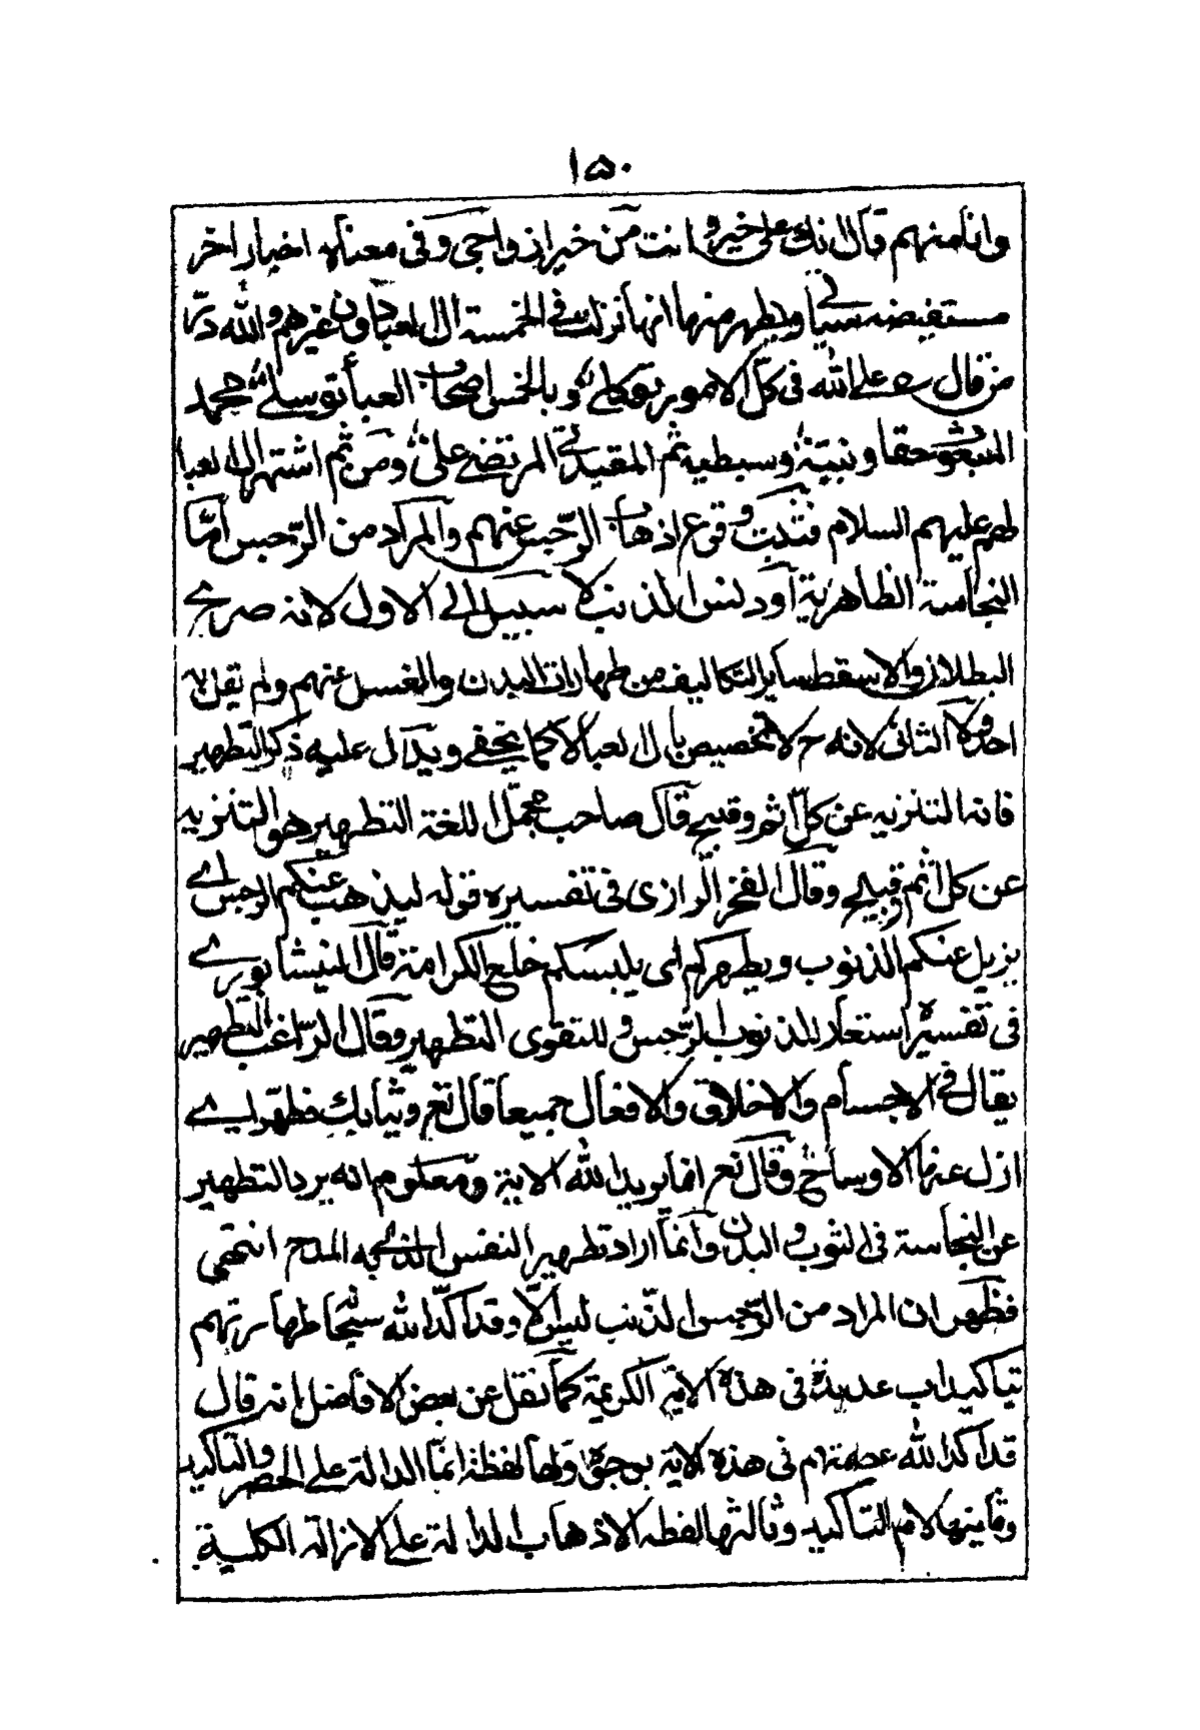 ۱۵۰
وانا منهم قال انك على خير وانت من خير ازواجى وفى معناه اخبار اخر
مستفيضه سيأتى ويظهر منها انها نزلت فى الخمسة ال العبا دون غيرهم ولله در
من قال على الله فى كل الامور توكلى وبالخمس اصحاب العبأ توسلى محمد
المبعوث حقا وبنته وسبطيه ثم المقتدى المرتضى على ومن ثم اشتهر ال العبا
عليهم السلام فثبت وقوع اذهاب الرجس عنهم والمراد من الرجس اما
النجاسة الظاهرية او دنس الذنب لا سبيل الى الاول لانه صرحى
البطلان والا سقط ساير التكاليف من طهارات البدن والغسل عنهم ولم يقل به
احد ولا الثانى لانه ح لا تخصيص بال العبا كما لا يخفى ويدل عليه ذكر التطهير
فانه التنزيه عن كل اثم وقبيح قال صاحب مجمل اللغة التطهير هو التنزيه
عن كل اثم وقبيح وقال الفخر الرازى فى تفسيره قوله ليذهب عنكم الرجس اى
يزيل عنكم الذنوب ويطهركم اى يلبسكم خلع الكرامة قال النيشابورى
فى تفسيره استعار للذنوب الرجس وللتقوى التطهير وقال الراغب التطهير
يقال فى الاجسام والاخلاق والافعال جميعا قال تعر وثيابك فطهر اى
ازل عنها الاوساخ وقال تعر انما يريد الله الاية ومعلوم انه يرد التطهير
عن النجاسة فى الثوب والبدن وانما اراد تطهير النفس الذى به المدح انتهى
فظهر ان المراد من الرجس الذنب ليس الا وقد اكد الله سبحانه طهارتهم
بتاكيدات عديدة فى هذه الاية الكريمة كما نقل عن بعض الافاضل انه قال
قد اكد الله عصمتهم فى هذه الاية بوجوه اولها لفظة انما الدالة على الحصر والتاكيد
وثانيها لام التاكيد وثالثها لفظه الاذهاب الدالة على الازالة الكلية